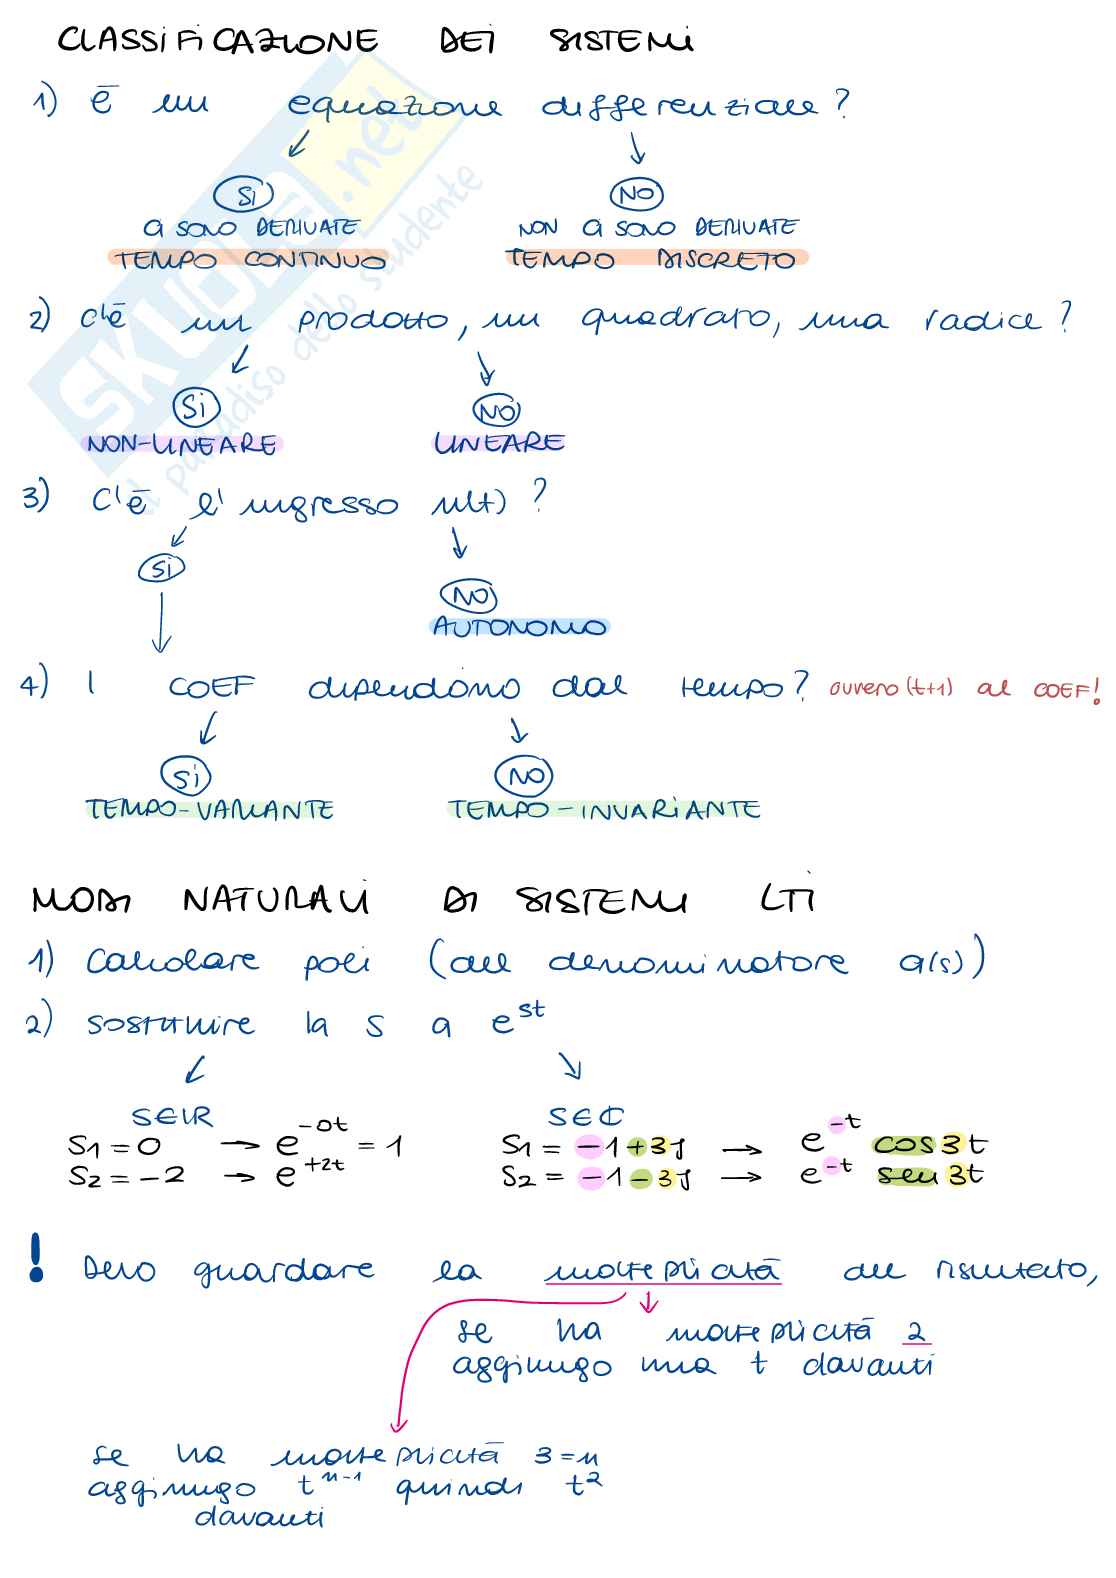 CLASSIFICAZIONE DEI SISTEMI
1) È un equazione differenziale?
SI NO
CI SONO DERIVATE NON CI SONO DERIVATE
TEMPO CONTINUO TEMPO DISCRETO
2) C'è un prodotto, un quadrato, una radice?
SI NO
NON-LINEARE LINEARE
3) C'è l'ingresso u(t)?
SI
NO
AUTONOMO
4) I COEF dipendono dal tempo? ovvero (t+1) al COEF!
SI NO
TEMPO-VARIANTE TEMPO-INVARIANTE
MODI NATURALI DI SISTEMI LTI
1) Calcolare poli (del denominatore a(s))
2) sostituire la s a e^st
S∈ℝ S∈ℂ
S1 = 0 → e^-0t = 1 S1 = -1+3j → e^-t cos3t
S2 = -2 → e^+2t S2 = -1-3j → e^-t sen3t
! Devo guardare la molteplicità del risultato,
se ha molteplicità 2
aggiungo una t davanti
se ha molteplicità 3=n
aggiungo t^n-1 quindi t^2
davanti
SKUOLA.net
il paradiso dello studente